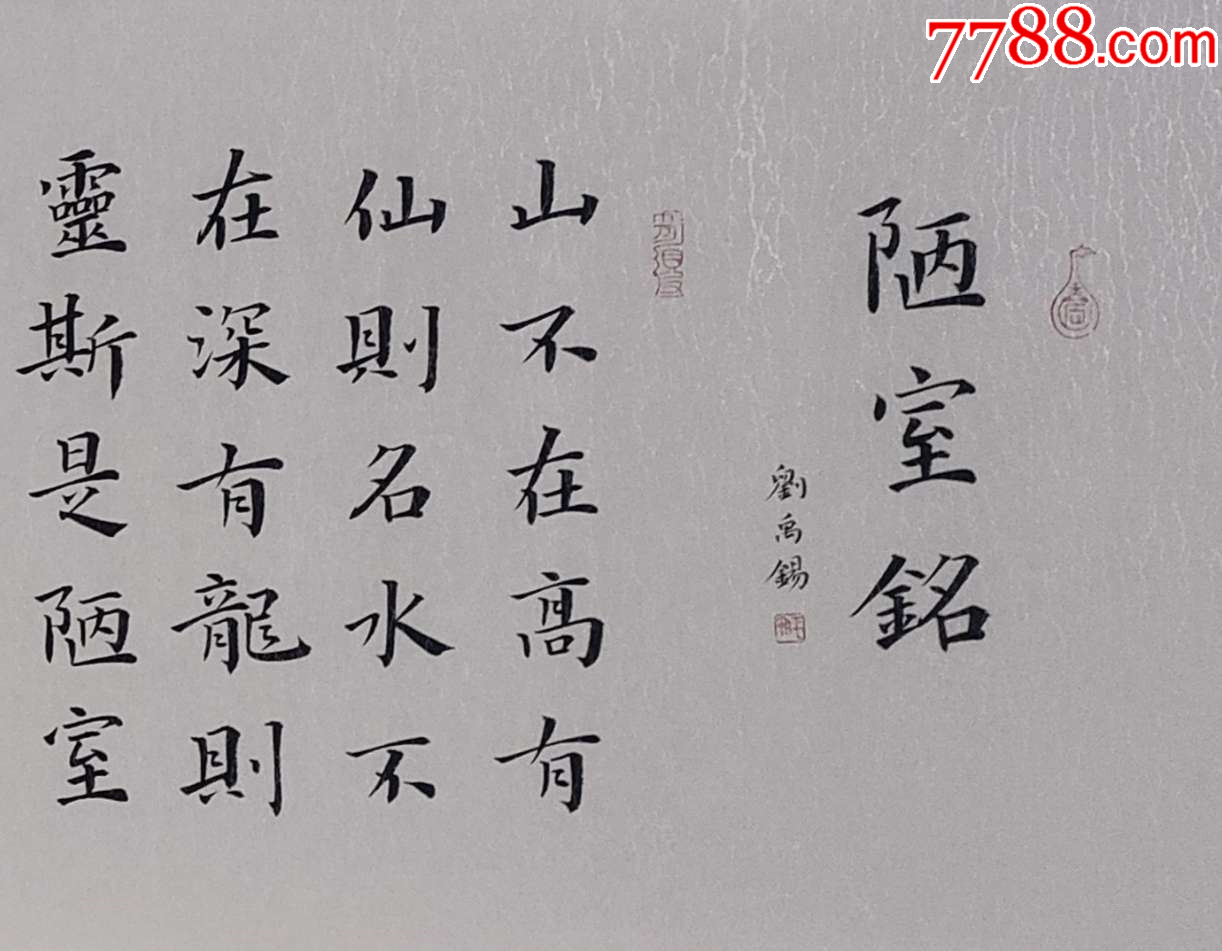 7788.com
陋室銘
劉禹錫
山不在高有
仙則名水不
在深有龍則
靈斯是陋室